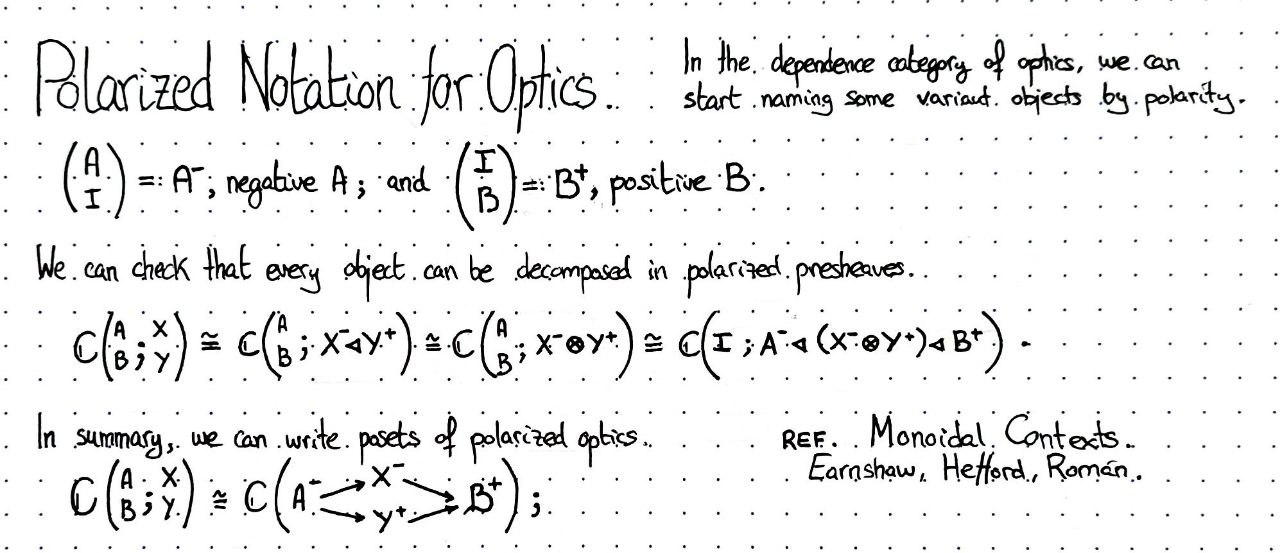 Polarized Notation for Optics.
In the dependence category of optics, we can
start naming some variant objects by polarity.
(A I) =: A⁻, negative A; and (I B) =: B⁺, positive B.
We can check that every object can be decomposed in polarized presheaves.
ℂ(A B ; X Y) ≅ ℂ(A B ; X⁻ ◁ Y⁺) ≅ ℂ(A B ; X⁻ ⊗ Y⁺) ≅ ℂ(I ; A⁻ ◁ (X⁻ ⊗ Y⁺) ◁ B⁺) .
In summary, we can write posets of polarized optics.
ℂ(A B ; X Y) ≅ ℂ(A⁻ → X⁻ → B⁺, A⁻ → Y⁺ → B⁺) ;
REF. Monoidal Contexts.
Earnshaw, Hefford, Román.